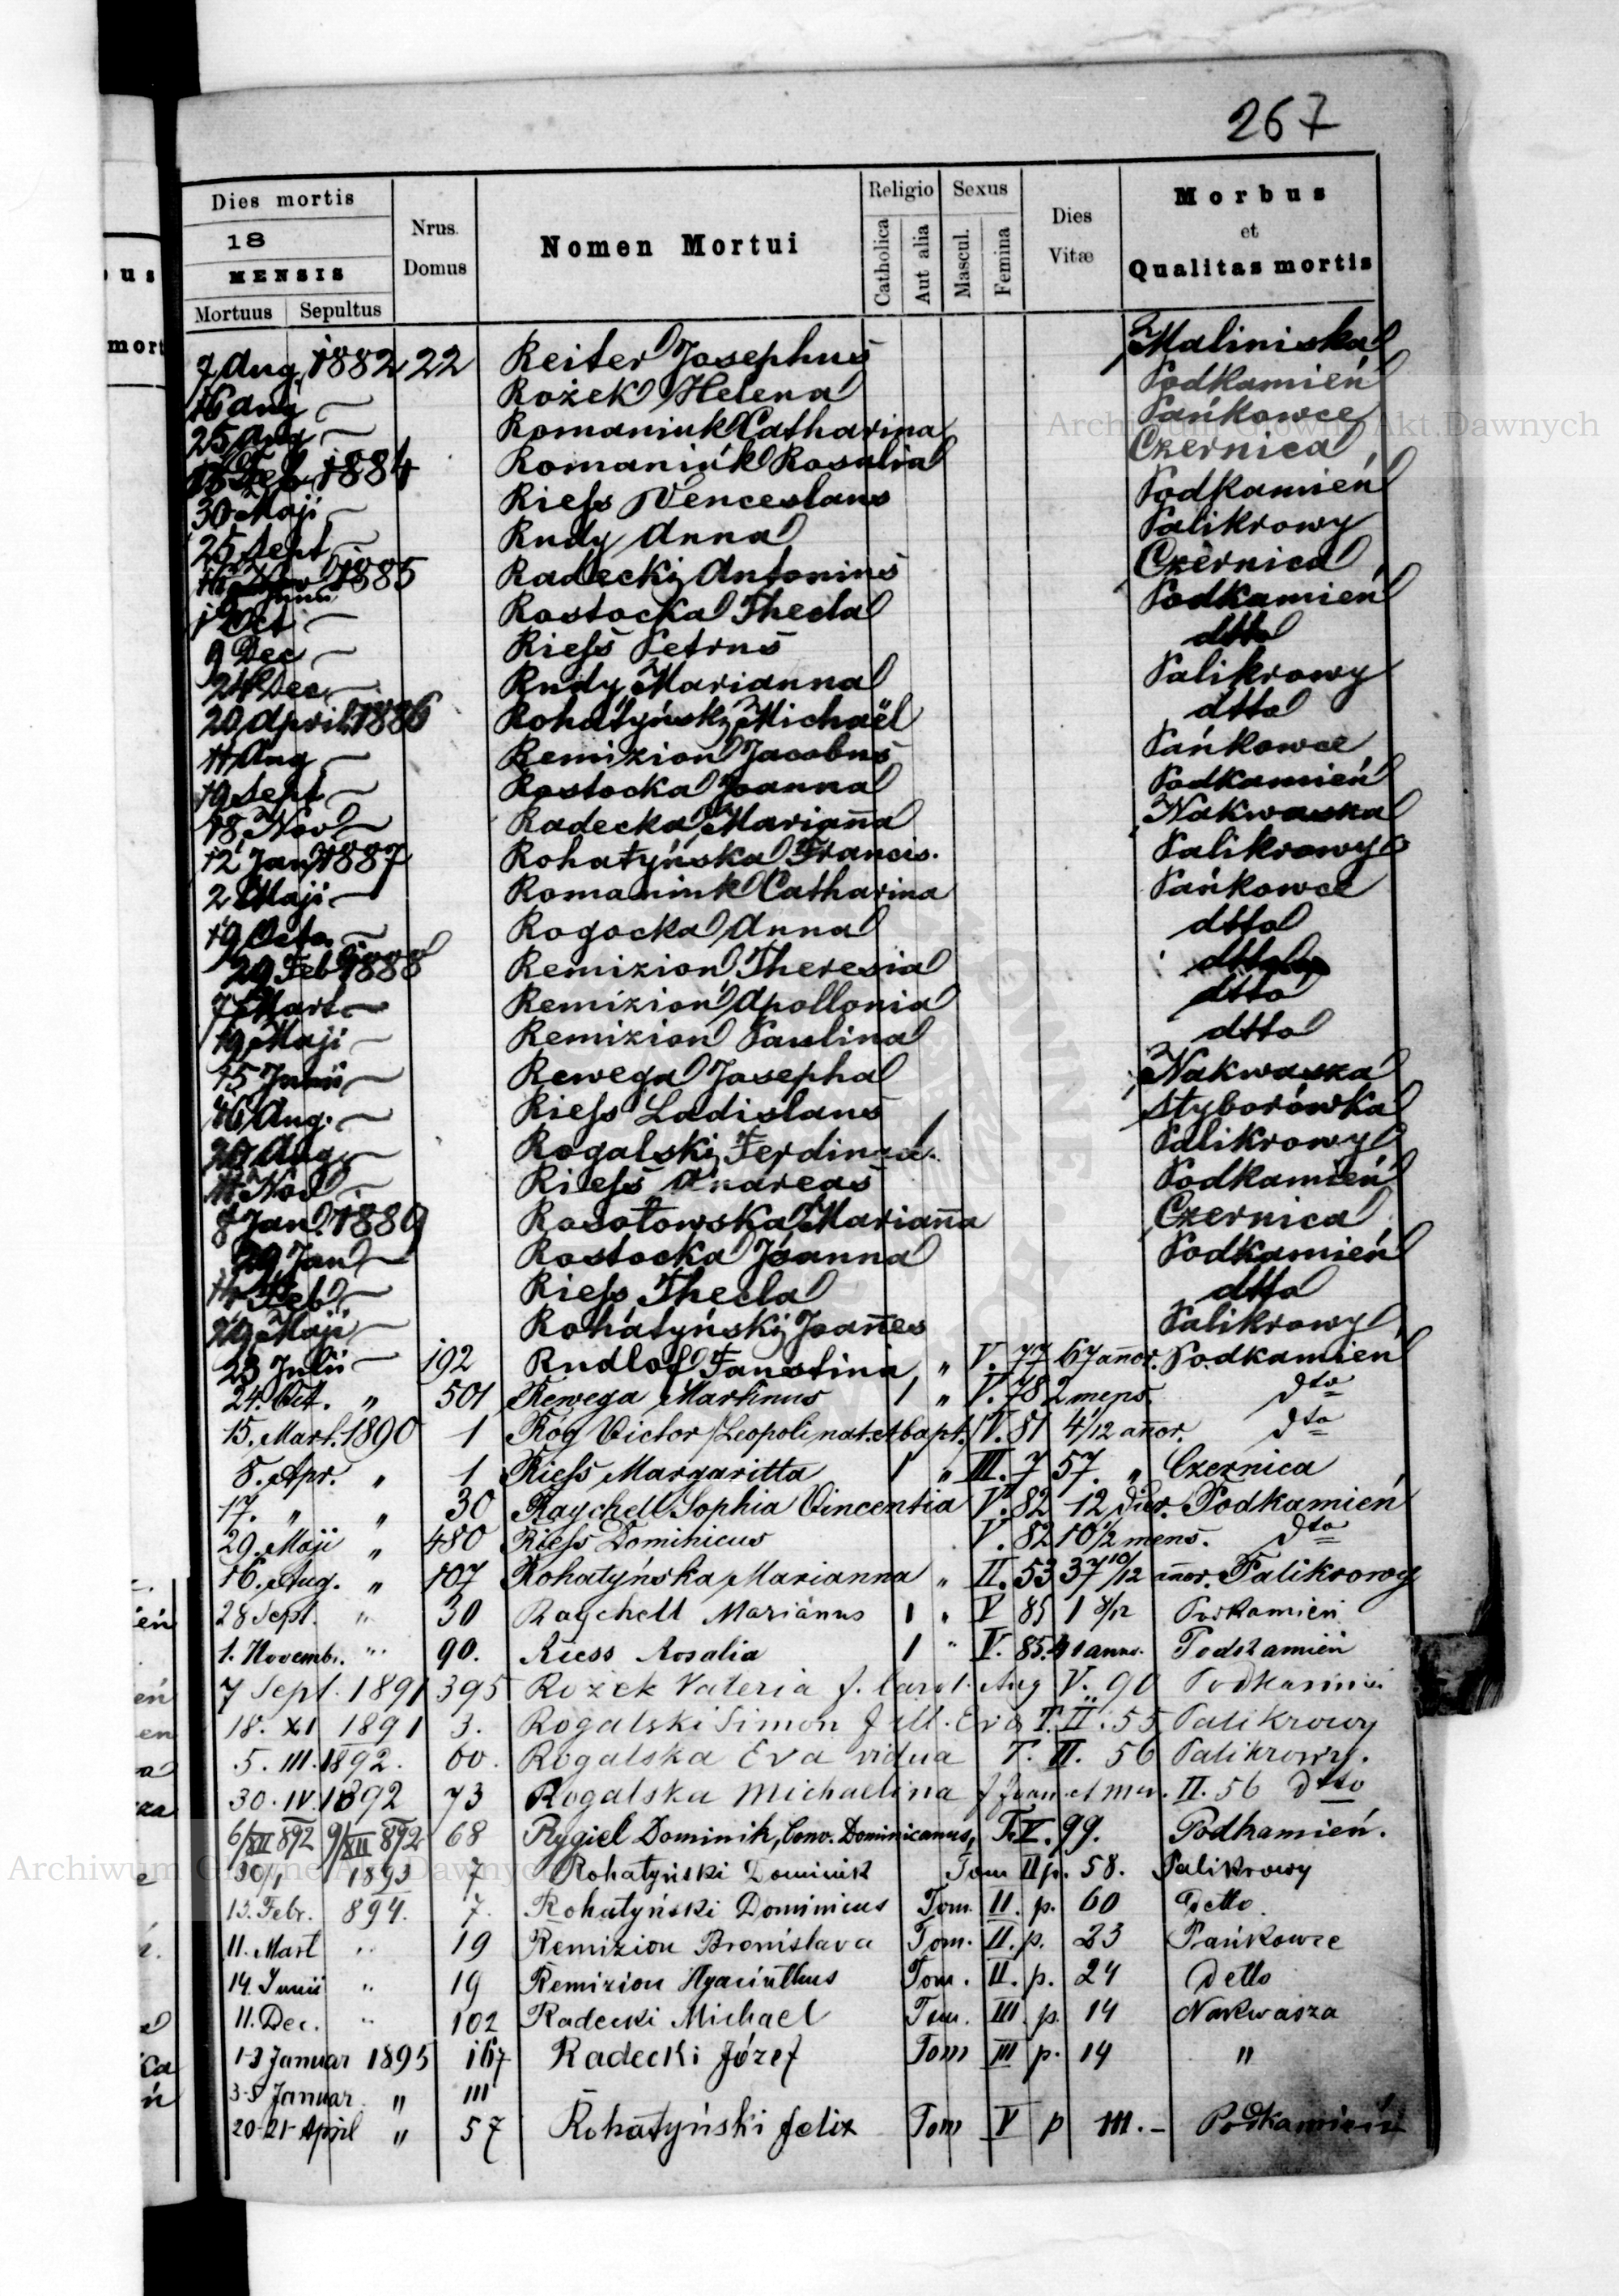 267
Dies mortis
18
MENSIS
Mortuus Sepultus
Nrus. Domus
Nomen Mortui
Religio
Catholica Aut alia
Sexus
Mascul. Femina
Dies Vitæ
Morbus et Qualitas mortis
7 Aug. 1882 22 Reiter Josephus Maliniska
16 Aug — Rożek Helena Podkamień
25 Aug — Romaniuk Catharina Pańkowce
Feb 1884 Romaniúk Rosalia Czernica
30 Maji — Rieſs Venceslaus Podkamień
25 Sept — Rudy Anna Palikrowy
1885 Radecki Antonius Czernica
Oct — Rostocka Thecla Podkamień
9 Dec — Rieſs Petrus dtto
24 Dec — Rudy Marianna Palikrowy
20 April 1886 Rohatyński Michaël dtto
11 Aug — Remizion Jacobus Pańkowce
19 Sept — Rostocka Joanna Podkamień
18 Nov — Radecka Mariañna Nakwaska
12 Jan 1887 Rohatyńska Francis. Palikrowy
2 Maji — Romaniuk Catharina Pańkowce
19 Octo. — Rogocka Anna dtto
29 Feb 1888 Remizion Theresia dtto
7 Mart — Remizion Apollonia dtto
19 Maji — Remizion Paulina dtto
15 Junii — Rewega Josepha Nakwasza
16 Aug. — Rieſs Ladislaus Styborówka
Aug — Rogalski Ferdinnd. Palikrowy
11 Nov — Rieſs Andreas Podkamień
8 Jan. 1889 Rosołowska Mariañna Czernica
29 Jan — Rostocka Joanna Podkamień
14 Feb — Rieſs Thecla dtto
29 Maji — Rohatyński Joañes Palikrowy
23 Julii — 192 Rudlof Faustina „ V. 77 67 añor. Podkamień
24. Oct. „ 501 Rewega Martinus 1 „ V. 78 2 mens. dto
15. Mart. 1890 1 Róg Victor /Leopoli nat. et bapt. IV. 81 4/12 añor. dto
8. Apr. „ 1 Rieſs Margaritta 1 „ III. 7 57. „ Czernica
17. „ „ 30 Raychell Sophia Vincentia V. 82 12 dier. Podkamień
29. Maji „ 480 Rieſs Dominicus V. 82 10 1/2 mens. dto
16. Aug. „ 107 Rohatyńska Marianna „ II. 53 37 10/12 añor. Palikrowy
28 Sept. „ 30 Raychell Marianus 1 „ V 85 1 8/12 Podkamień
1. Novembr. „ 90. Riess Rosalia 1 „ V. 85. anno. Podkamień
7 Sept. 1891 395 Rożek Valeria f. Carol. Aug V. 90 Podkamień
18. XI 1891 3. Rogalski Simon f. M. Eva T. II. 55 Palikrowy
5. III. 1892. 60. Rogalska Eva vidua T. II. 56 Palikrowy.
30. IV. 1892 73 Rogalska Michaelina f Joan. et Mar. II. 56 dtto
6/XII 892 9/XII 892 68 Rygiel Dominik, Conv. Dominicanus, T. V. 99. Podkamień.
30/1 1893 7 Rohatyński Dominik Tom II p. 58. Palikrowy
13. Febr. 894. 7. Rohatyński Dominicus Tom. II. p. 60 Detto.
11. Mart „ 19 Remizion Bronislava Tom. II. p. 23 Pańkowce
14. Junii „ 19 Remizion Hyacinthus Tom. II. p. 24 Detto
11. Dec. „ 102 Radecki Michael Tom. III. p. 14 Nakwasza
1-3 Januar 1895 167 Radecki Józef Tom III p. 14 "
3-5 Januar „ 111
20-21 April „ 57 Rohatyński Felix Tom V p 111.- Podkamień
Archiwum Główne Akt Dawnych
Archiwum Główne Akt Dawnych